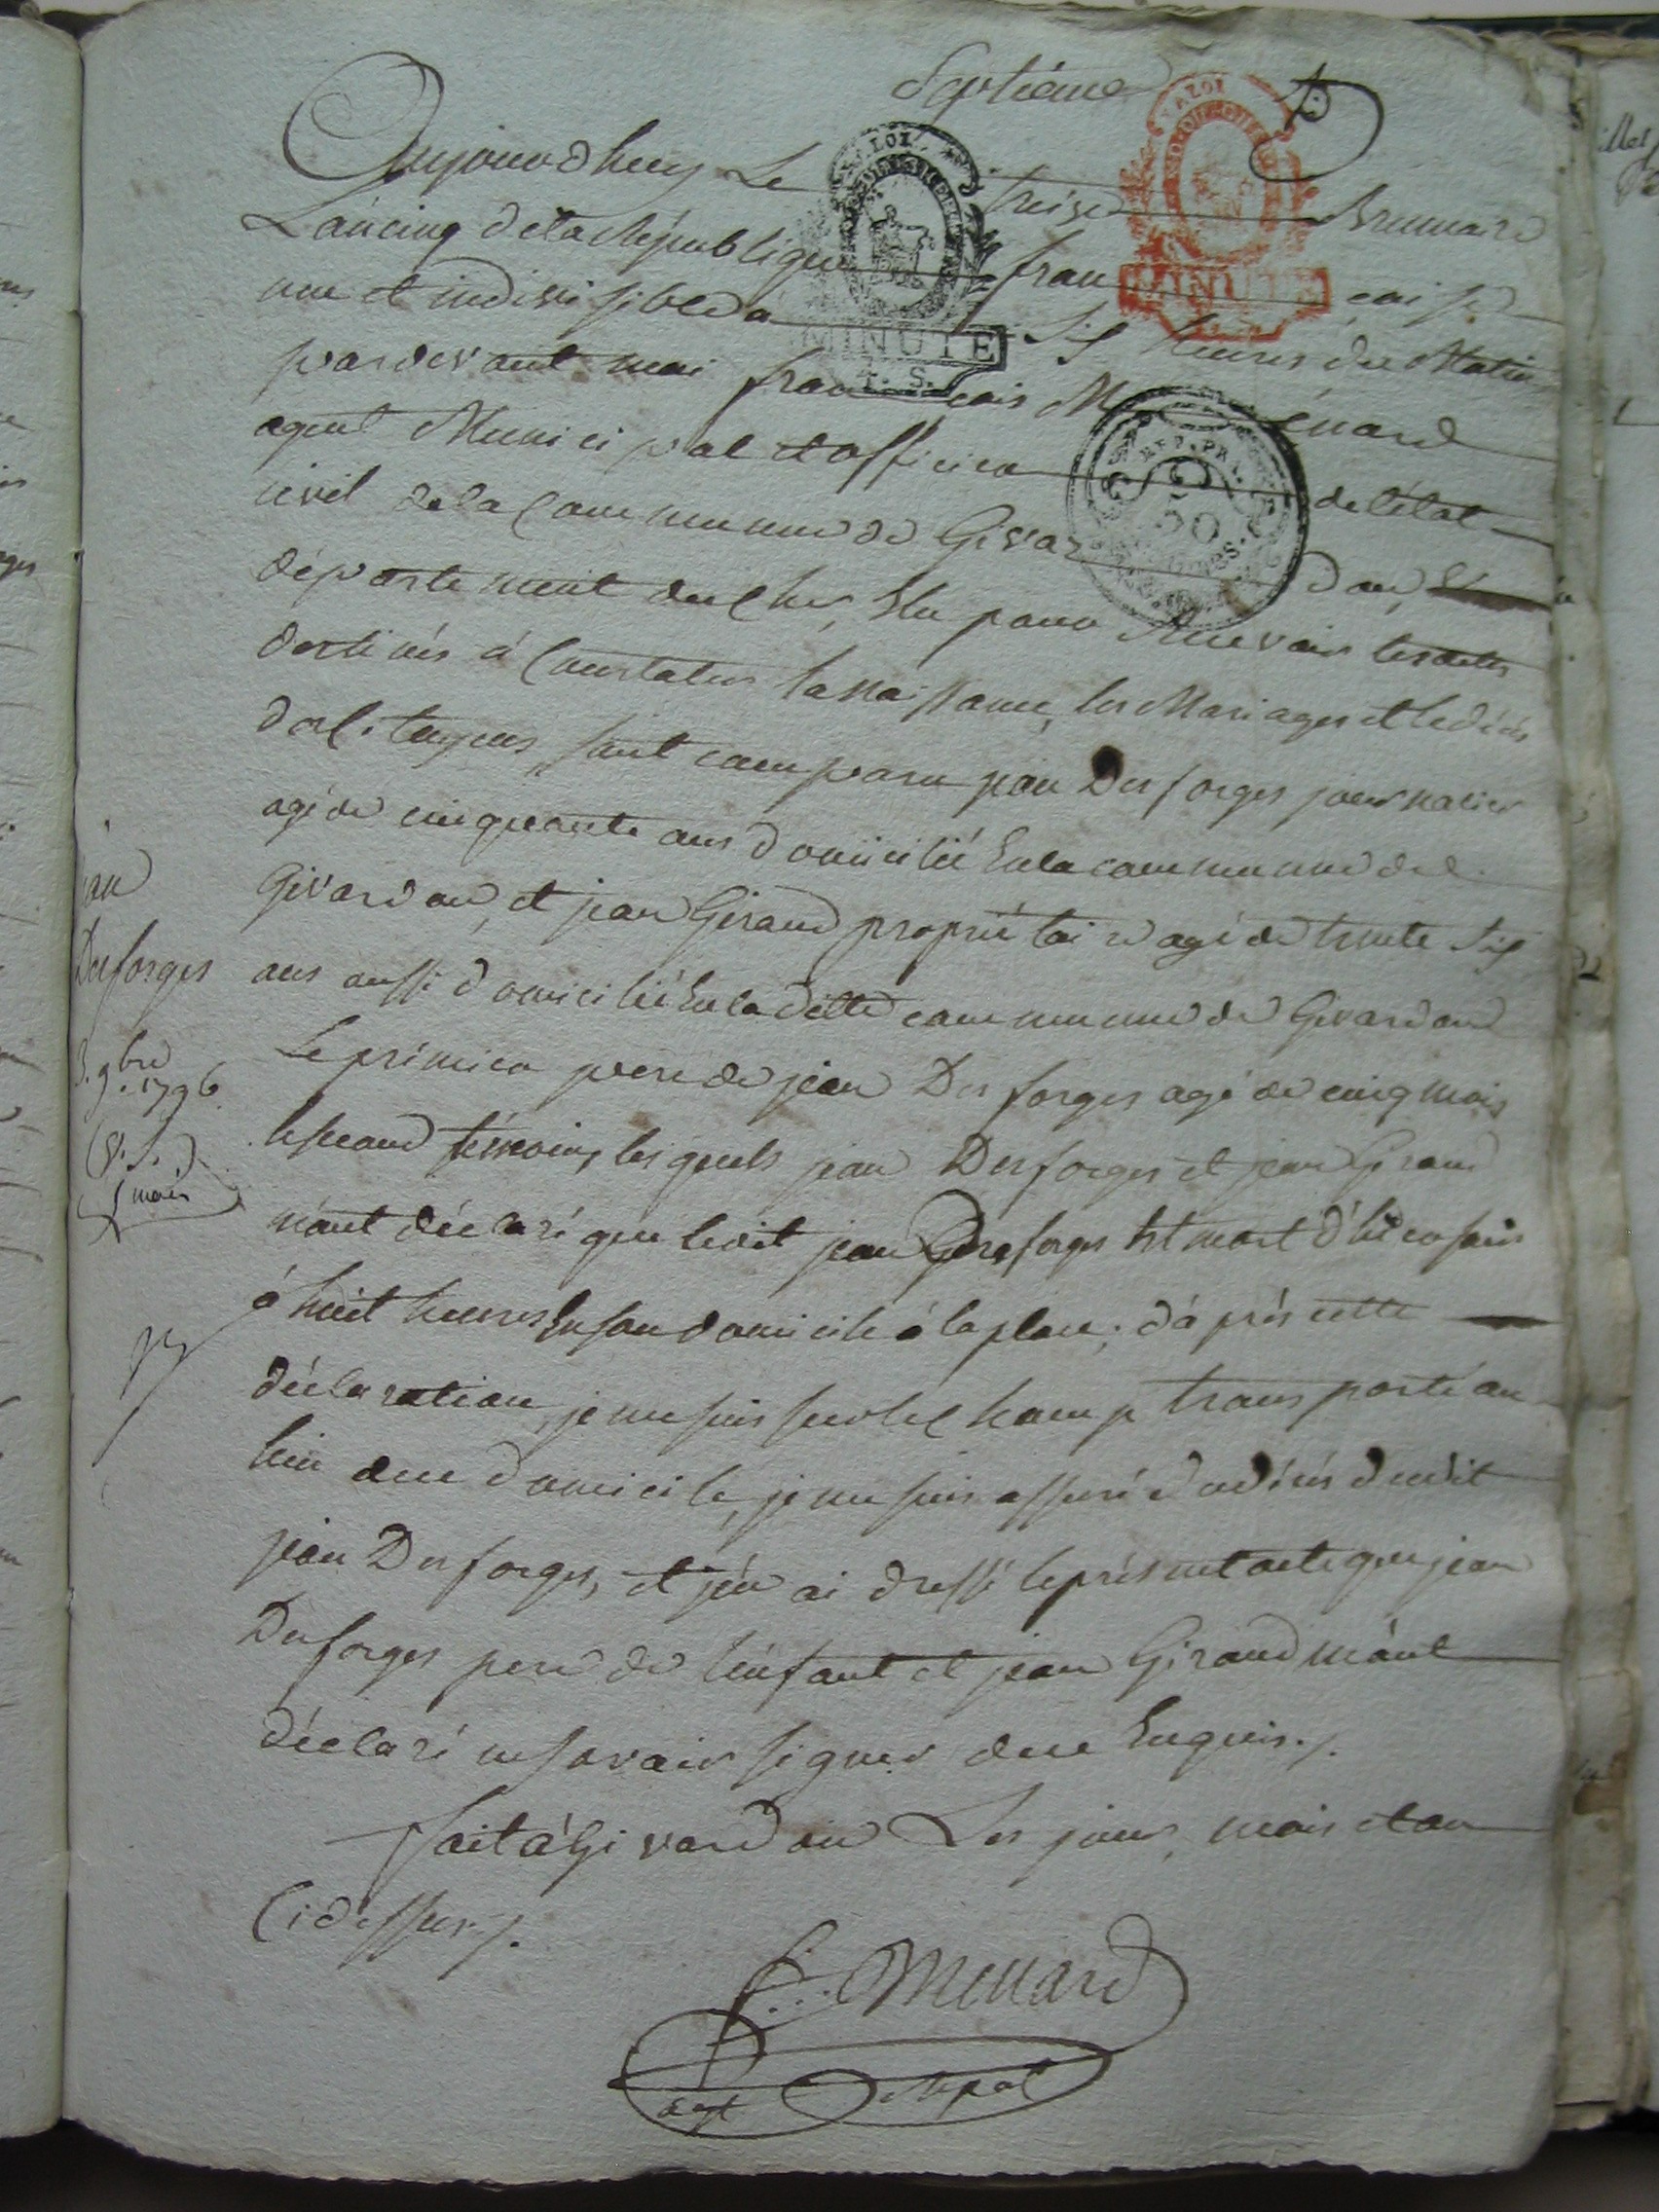 Septiéme
Aujourdhuy Le treise Brumaire
L'ancinq de la République francaise
une et indivisible à Six heures du Matin
pardevant moi francois Ménard
agent Municipal et officier de l'état
civil de la Commune de Givardon,
département du Cher, Elu pour Recevoir les actes
destinés á Constater la Naissance, les Mariages et le décés
des Citoyens, sont comparu jean Desforges journalier
agé de cinquante ans domicilié En la commune de
Givardon, et jean Giraud propriétaire agé de trente Six
ans aussi domicilié En la ditte commune de Givardon
Le prémier pere de jean Desforges agé de cinq mois
le second témoins, les quels jean Desforges et jean Giraud
m'ont déclaré que ledit jean Desforges Est mort d'hier soir
á huit heures En son domicile á la place; d'aprés cette
déclaration, je me suis sur le Champ transporté au
lieu du domicile, je me suis assuré du décés dudit
jean Desforges, et j'en ai dressé le présent acte que jean
Desforges pere de l'enfant et jean Giraud m'ont
déclaré ne savoir signer de ce Enquis./.
fait á Givardon Les jour, mois et an
Ci dessus./.
f. Menard
agt Mpal
Desforges
3. 9bre 1796
(V. S.)
5 mois
LA LOI
MINUTE
T. S.
LA LOI
MINUTE
REP. FRA.
50